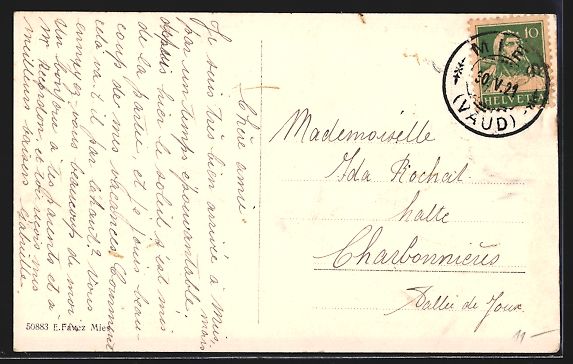 Chère amie
Je suis très bien arrivée à Mies, mais
par un temps épouvantable,
depuis hier le soleil s'est mis
de la partie, et je jouis beau-
coup de mes vacances. Comment
cela va-t-il par là-haut? Vous
ennuyez-vous beaucoup de moi
Un bonjour à tes parents et à
Mr Reardon et toi reçois mes
meilleurs baisers
Mademoiselle
Ida Rochat
halte
Charbonnières
Vallée de Joux
MIES
30.V.21
(VAUD)
10
HELVETIA
50883 E. Favez Mies
11-